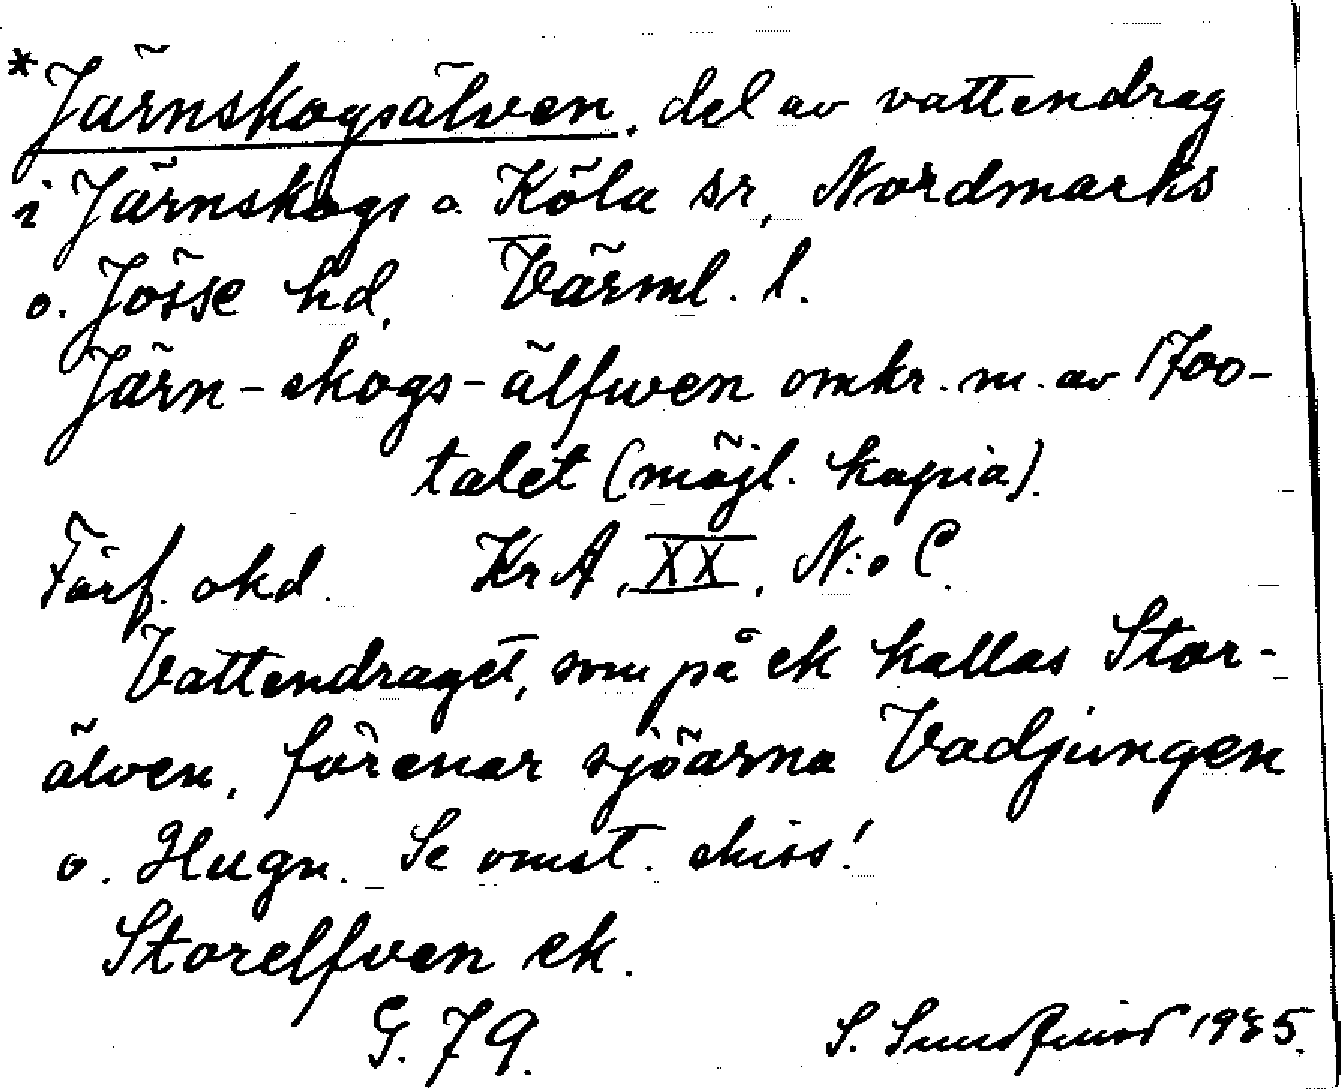 *Järnskogsälven, del av vattendrag
i Järnskogs o. Köla sr, Nordmarks
o. Jösse hd, Värml. l.
Järn-skogs-älfwen omkr. m. av 1700-
talet (möjl. kopia).
Förf. okd. KrA, XX, N:o C.
Vattendraget, som på ek kallas Stor-
älven, förenar sjöarna Vadjungen
o. Hugn. Se omst. skiss!
Storelfven ek.
G. 79. S. 1935.